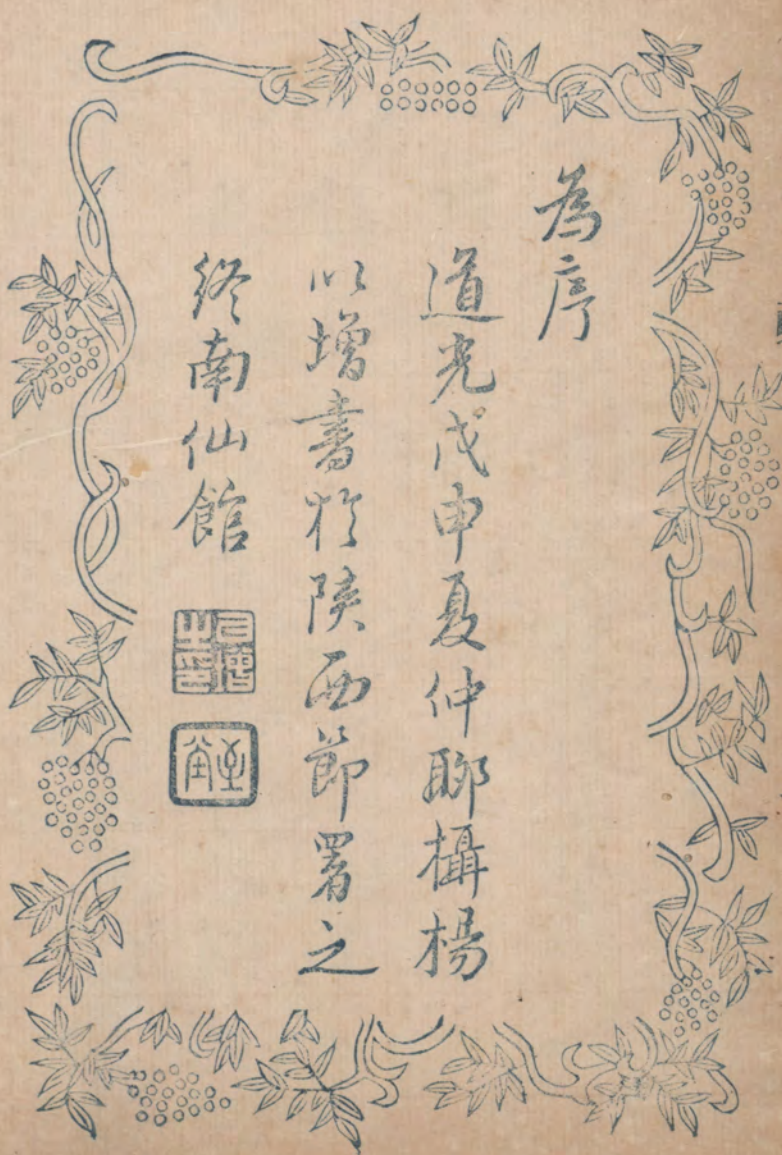 為序
道光戊申夏仲聊攝楊
以增書於陝西節署之
終南仙館
㠯增之印
至堂